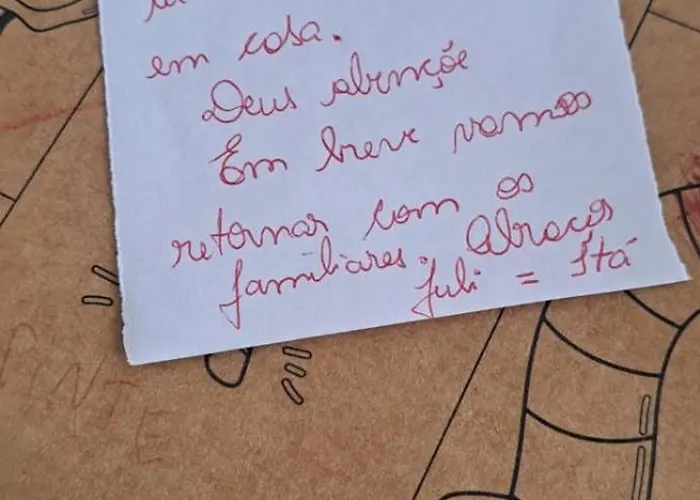 em casa.
Deus abençõe
Em breve vamos
retornar com os
familiares. Abraços
Juli = Itá